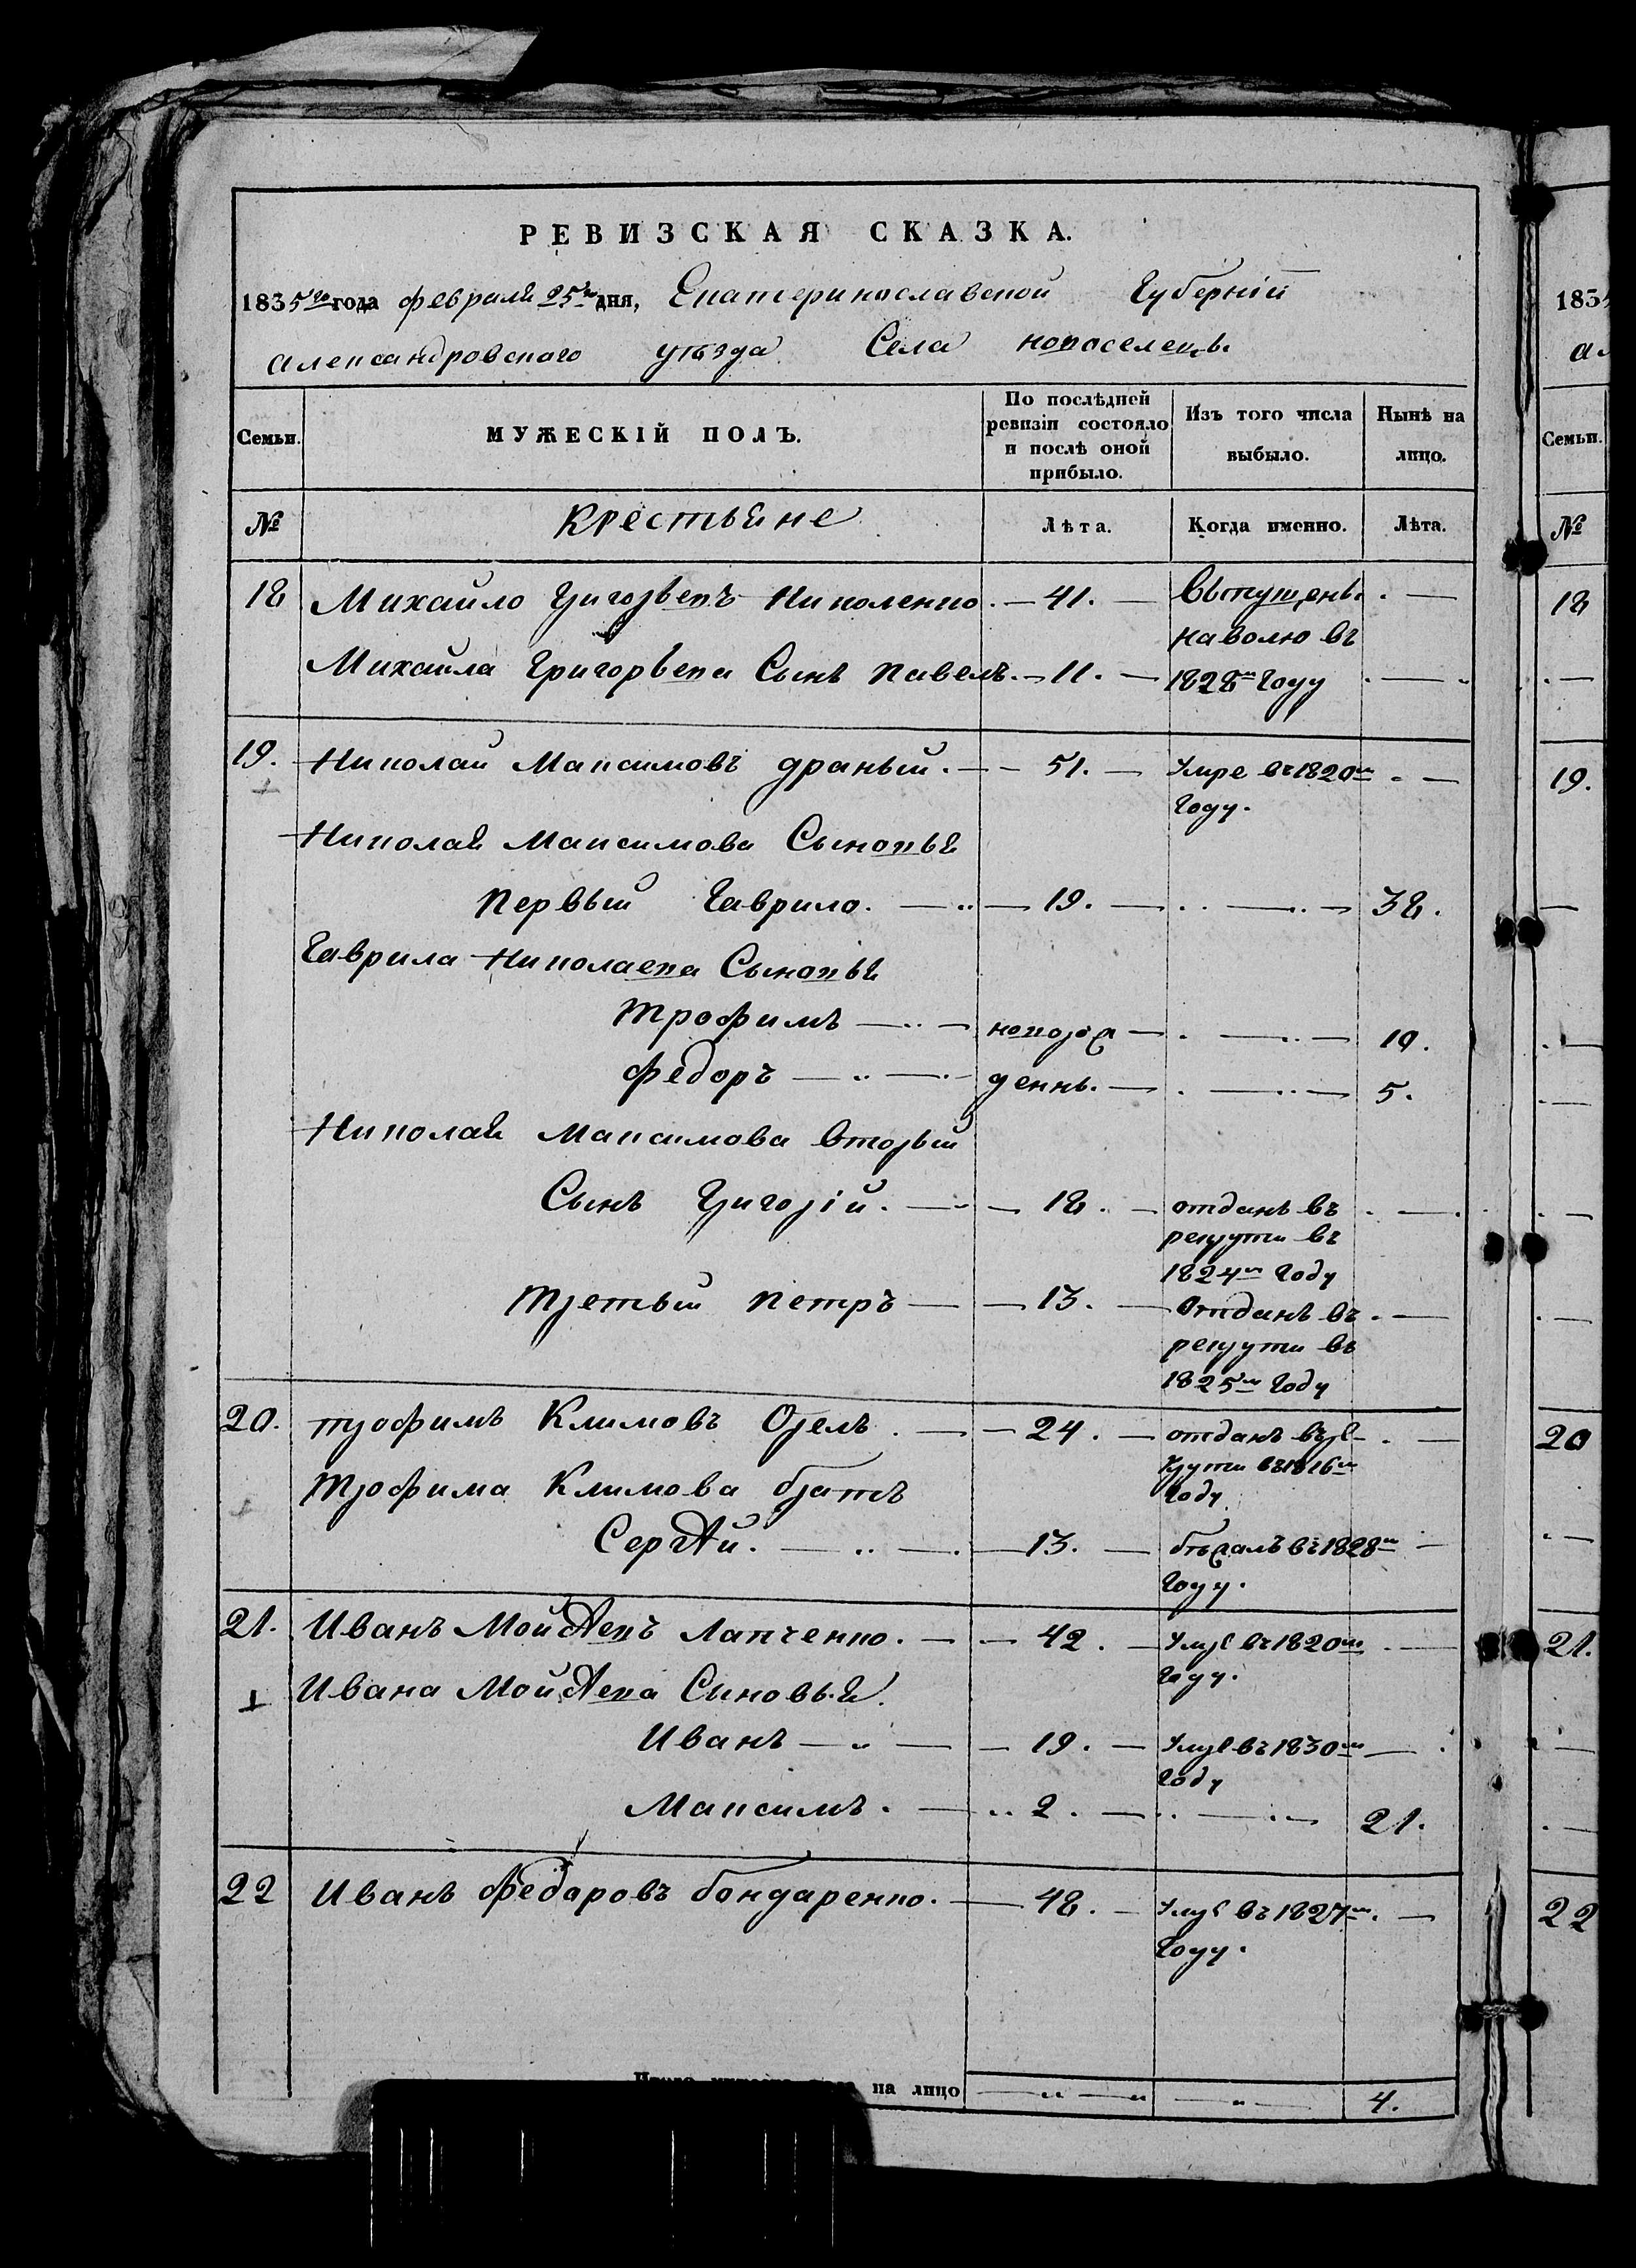 РЕВИЗСКАЯ СКАЗКА.
1835го года февраля 25го дня, Екатеринославской Губернiи
Александровского уѣзда Села новоселець.
Семьи.
МУЖЕСКІЙ ПОЛЪ.
По послѣдней ревизіи состояло и послѣ оной прибыло.
Изъ того числа выбыло.
Нынѣ на лицо.
№
Крестьяне
Лѣта.
Когда именно.
Лѣта.
18 Михайло Григорьевъ Николенко. — 41. — Выпущенъ. . —
наволю въ
Михаила Григорьева Сынъ павелъ. — 11. — 1828м Году . — .
19. Николай Максимовъ драный. — — 51. — Умре въ 1820м . —
Году.
Николая Максимова Сыновья
первый Гаврило. — .. — 19. — . . — .. — 38.
Гаврила Николаева Сыновья
Трофимъ — .. — новорож — . — .. — 10.
федоръ — .. — денны. — . — .. — 5.
Николая Максимова вторый
Сынъ Григорій. — .. — 18. — отданъ въ . — .
рекруты въ
1824м Году
Третый петръ — — 13. — Отданъ въ . —
рекруты въ
1825м Году
20. трофимъ Климовъ Орелъ . — — 24. — отданъ въ ре- . —
круты въ 1816м
Году
Трофима Климова братъ
Сергѣй. — .. — . — 13. — бѣжалъ въ 1828м —
Году.
21. Иванъ Мойсѣевъ Лапченко. — — 42. — Умре въ 1820м . —
Году.
Ивана Мойсѣева Сыновья.
Иванъ — .. — — 19. — Умре въ 1830м — .
Году
Максимъ. — .. 2. — .. — .. — 21.
22 Иванъ Федоровъ бондаренко. — 48. — Умре въ 1827м . —
Году.
на лицо — .. — .. — .. — 4.
183
Семьи.
№
18
19.
20
21.
22